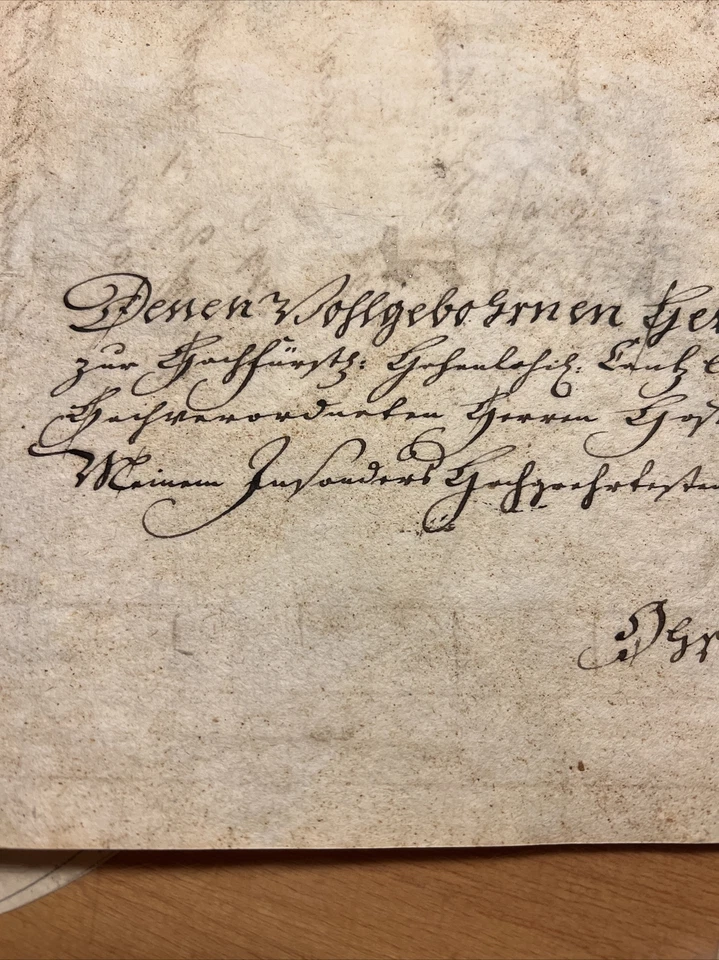 Denen Wohlgebohrnen Her
zur Hochfürstl: Hohenlohil: Cantzl
Hochverordneten Herren Hof
Meinem Insonders Hochgeehrtesten
Ohr